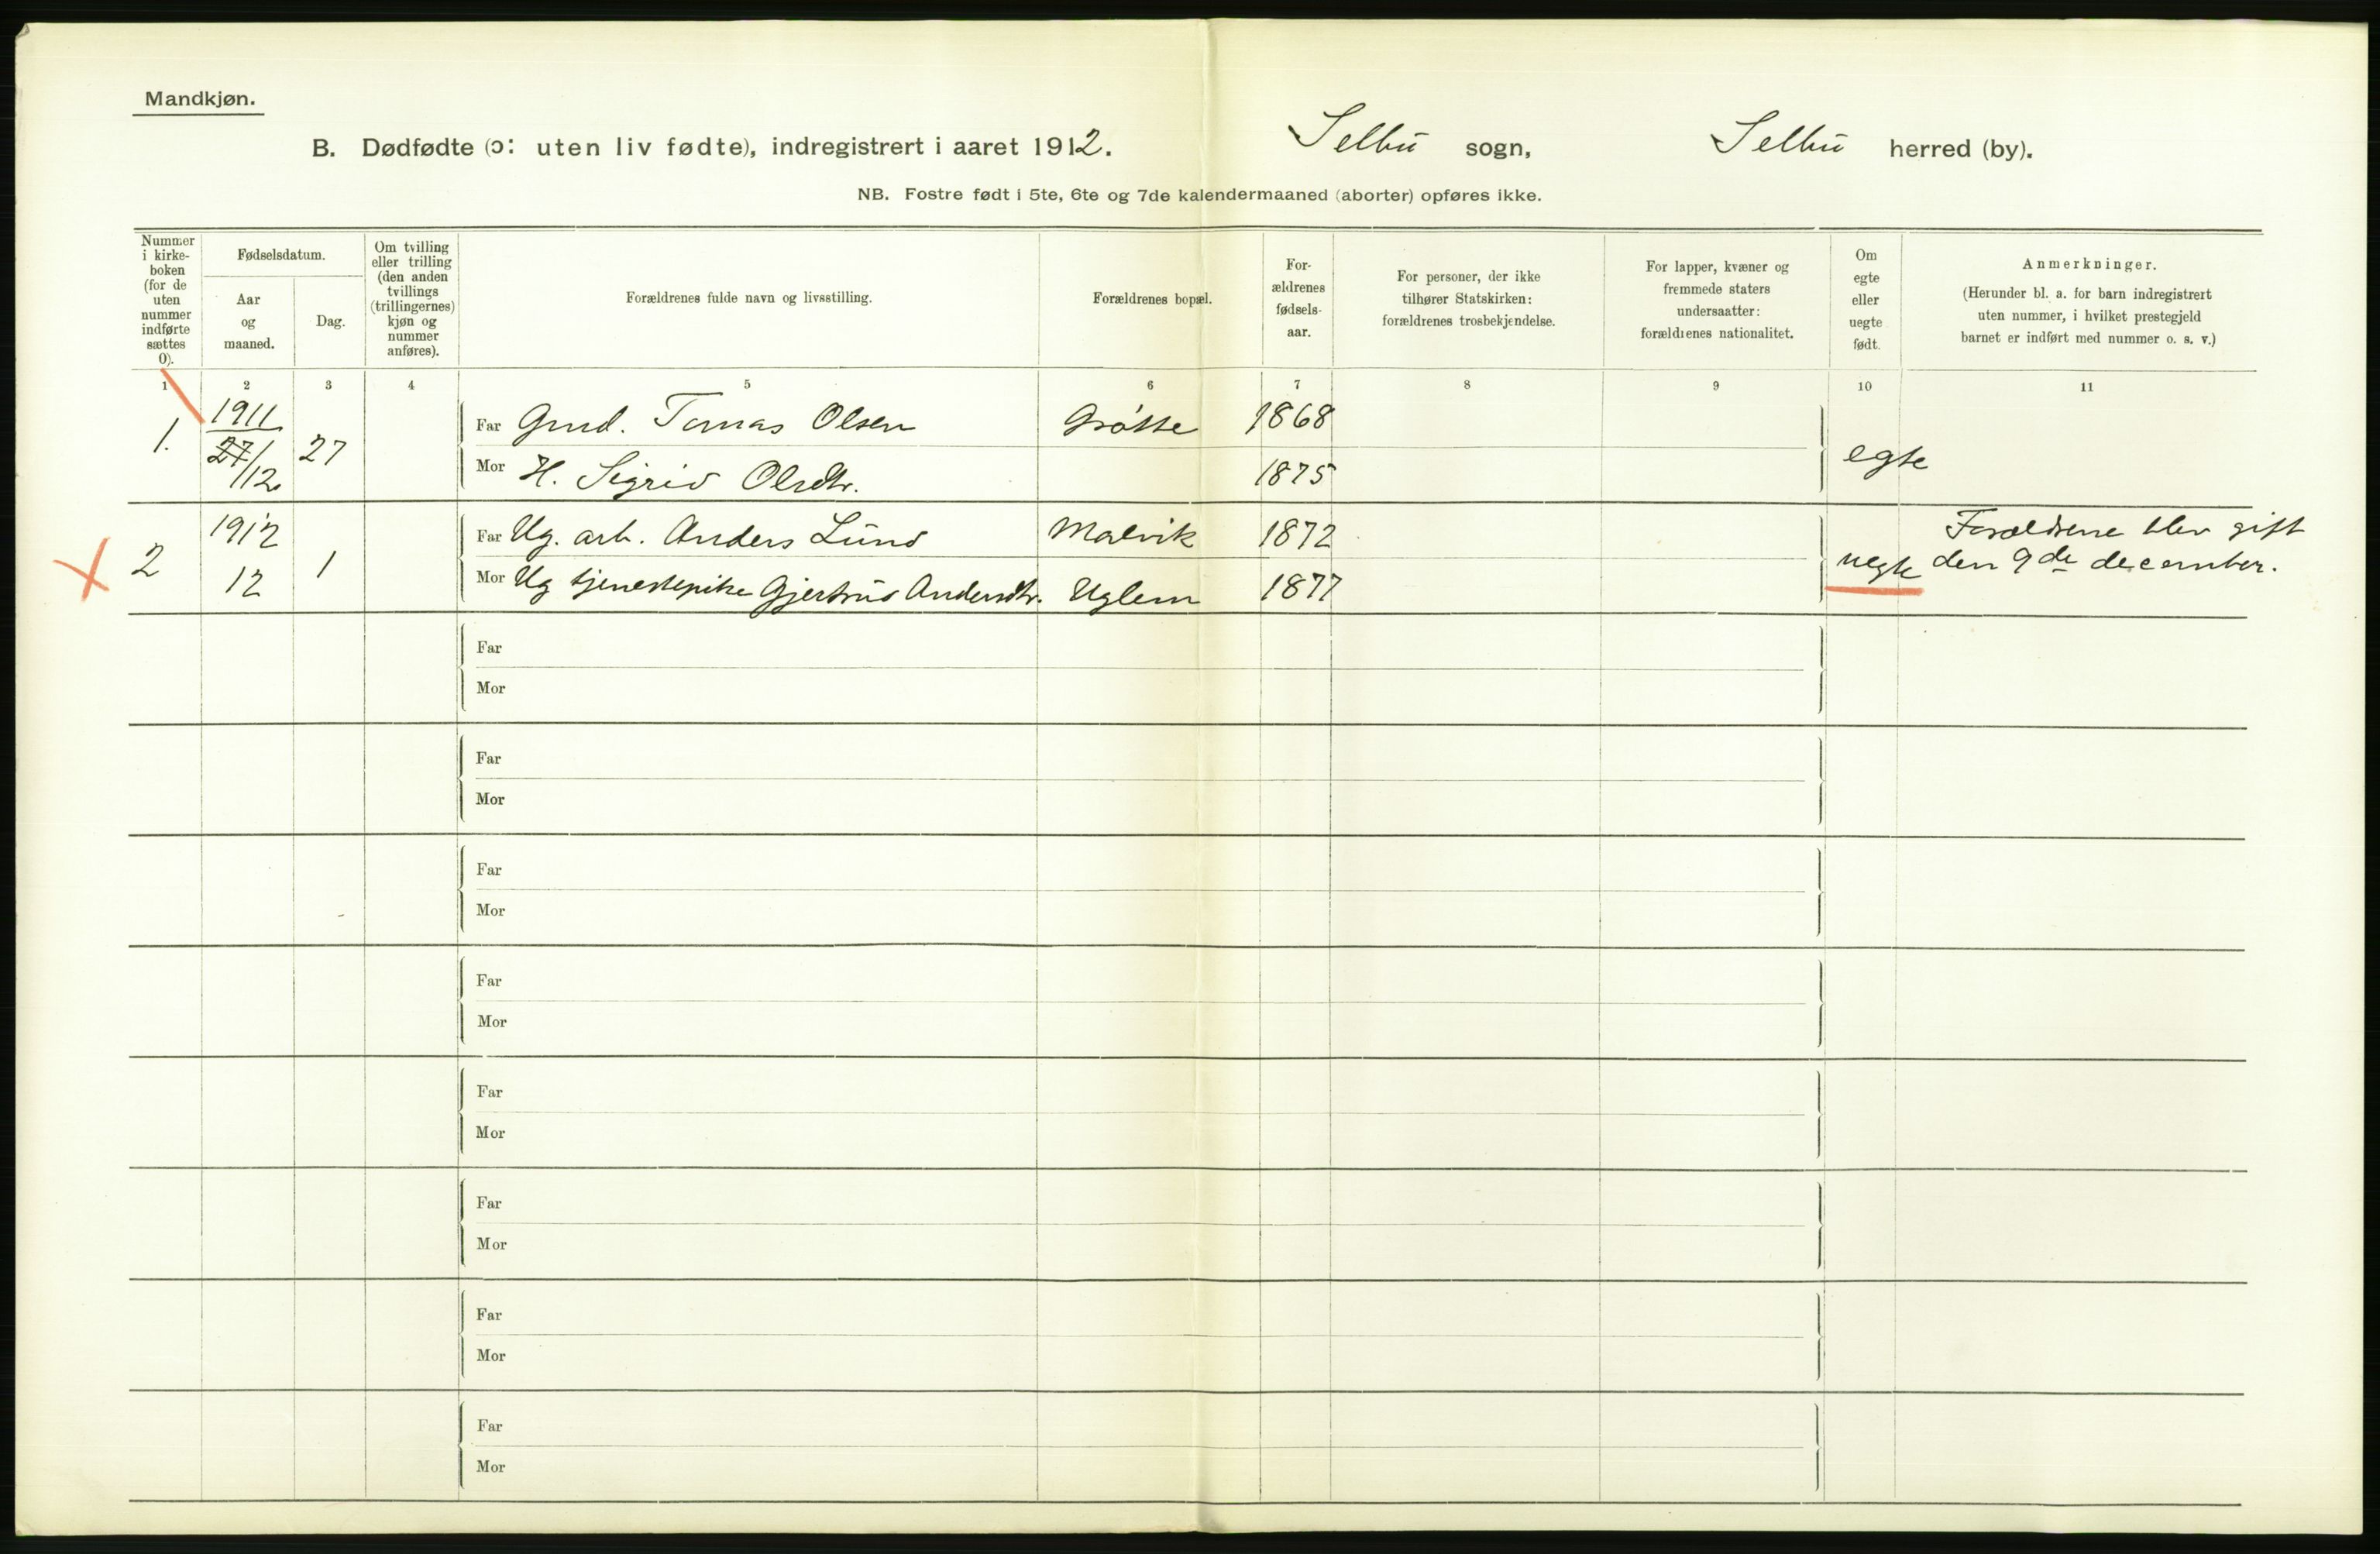 Mandkjøn.
B. Dødfødte (ɔ: uten liv fødte), indregistrert i aaret 1912. Selbu sogn, Selbu herred (by).
NB. Fostre født i 5te, 6te og 7de kalendermaaned (aborter) opføres ikke.
Nummer
i kirke-
boken
(for de
uten
nummer
indførte
sættes
0).
Fødselsdatum.
Aar
og
maaned.
Dag.
Om tvilling
eller trilling
(den anden
tvillings
(trillingernes)
kjøn og
nummer
anføres).
Forældrenes fulde navn og livsstilling.
Forældrenes bopæl.
For-
ældrenes
fødsels-
aar.
For personer, der ikke
tilhører Statskirken:
forældrenes trosbekjendelse.
For lapper, kvæner og
fremmede staters
undersaatter:
forældrenes nationalitet.
Om
egte
eller
uegte
født.
Anmerkninger.
(Herunder bl. a. for barn indregistrert
uten nummer, i hvilket prestegjeld
barnet er indført med nummer o. s. v.)
1 2 3 4 5 6 7 8 9 10 11
1. 1911 27/12 27
Far Grnd. Tomas Olsen Grøtte 1868
Mor H. Sigrid Olsdtr. 1875
egte
2 1912 12 1
Far Ug. arb. Anders Lund Malvik 1872
Mor Ug tjenestepike Gjertrud Andersdtr. Uglem 1877
uegte
Forældrene blev gift
den 9de december.
Far
Mor
Far
Mor
Far
Mor
Far
Mor
Far
Mor
Far
Mor
Far
Mor
Far
Mor